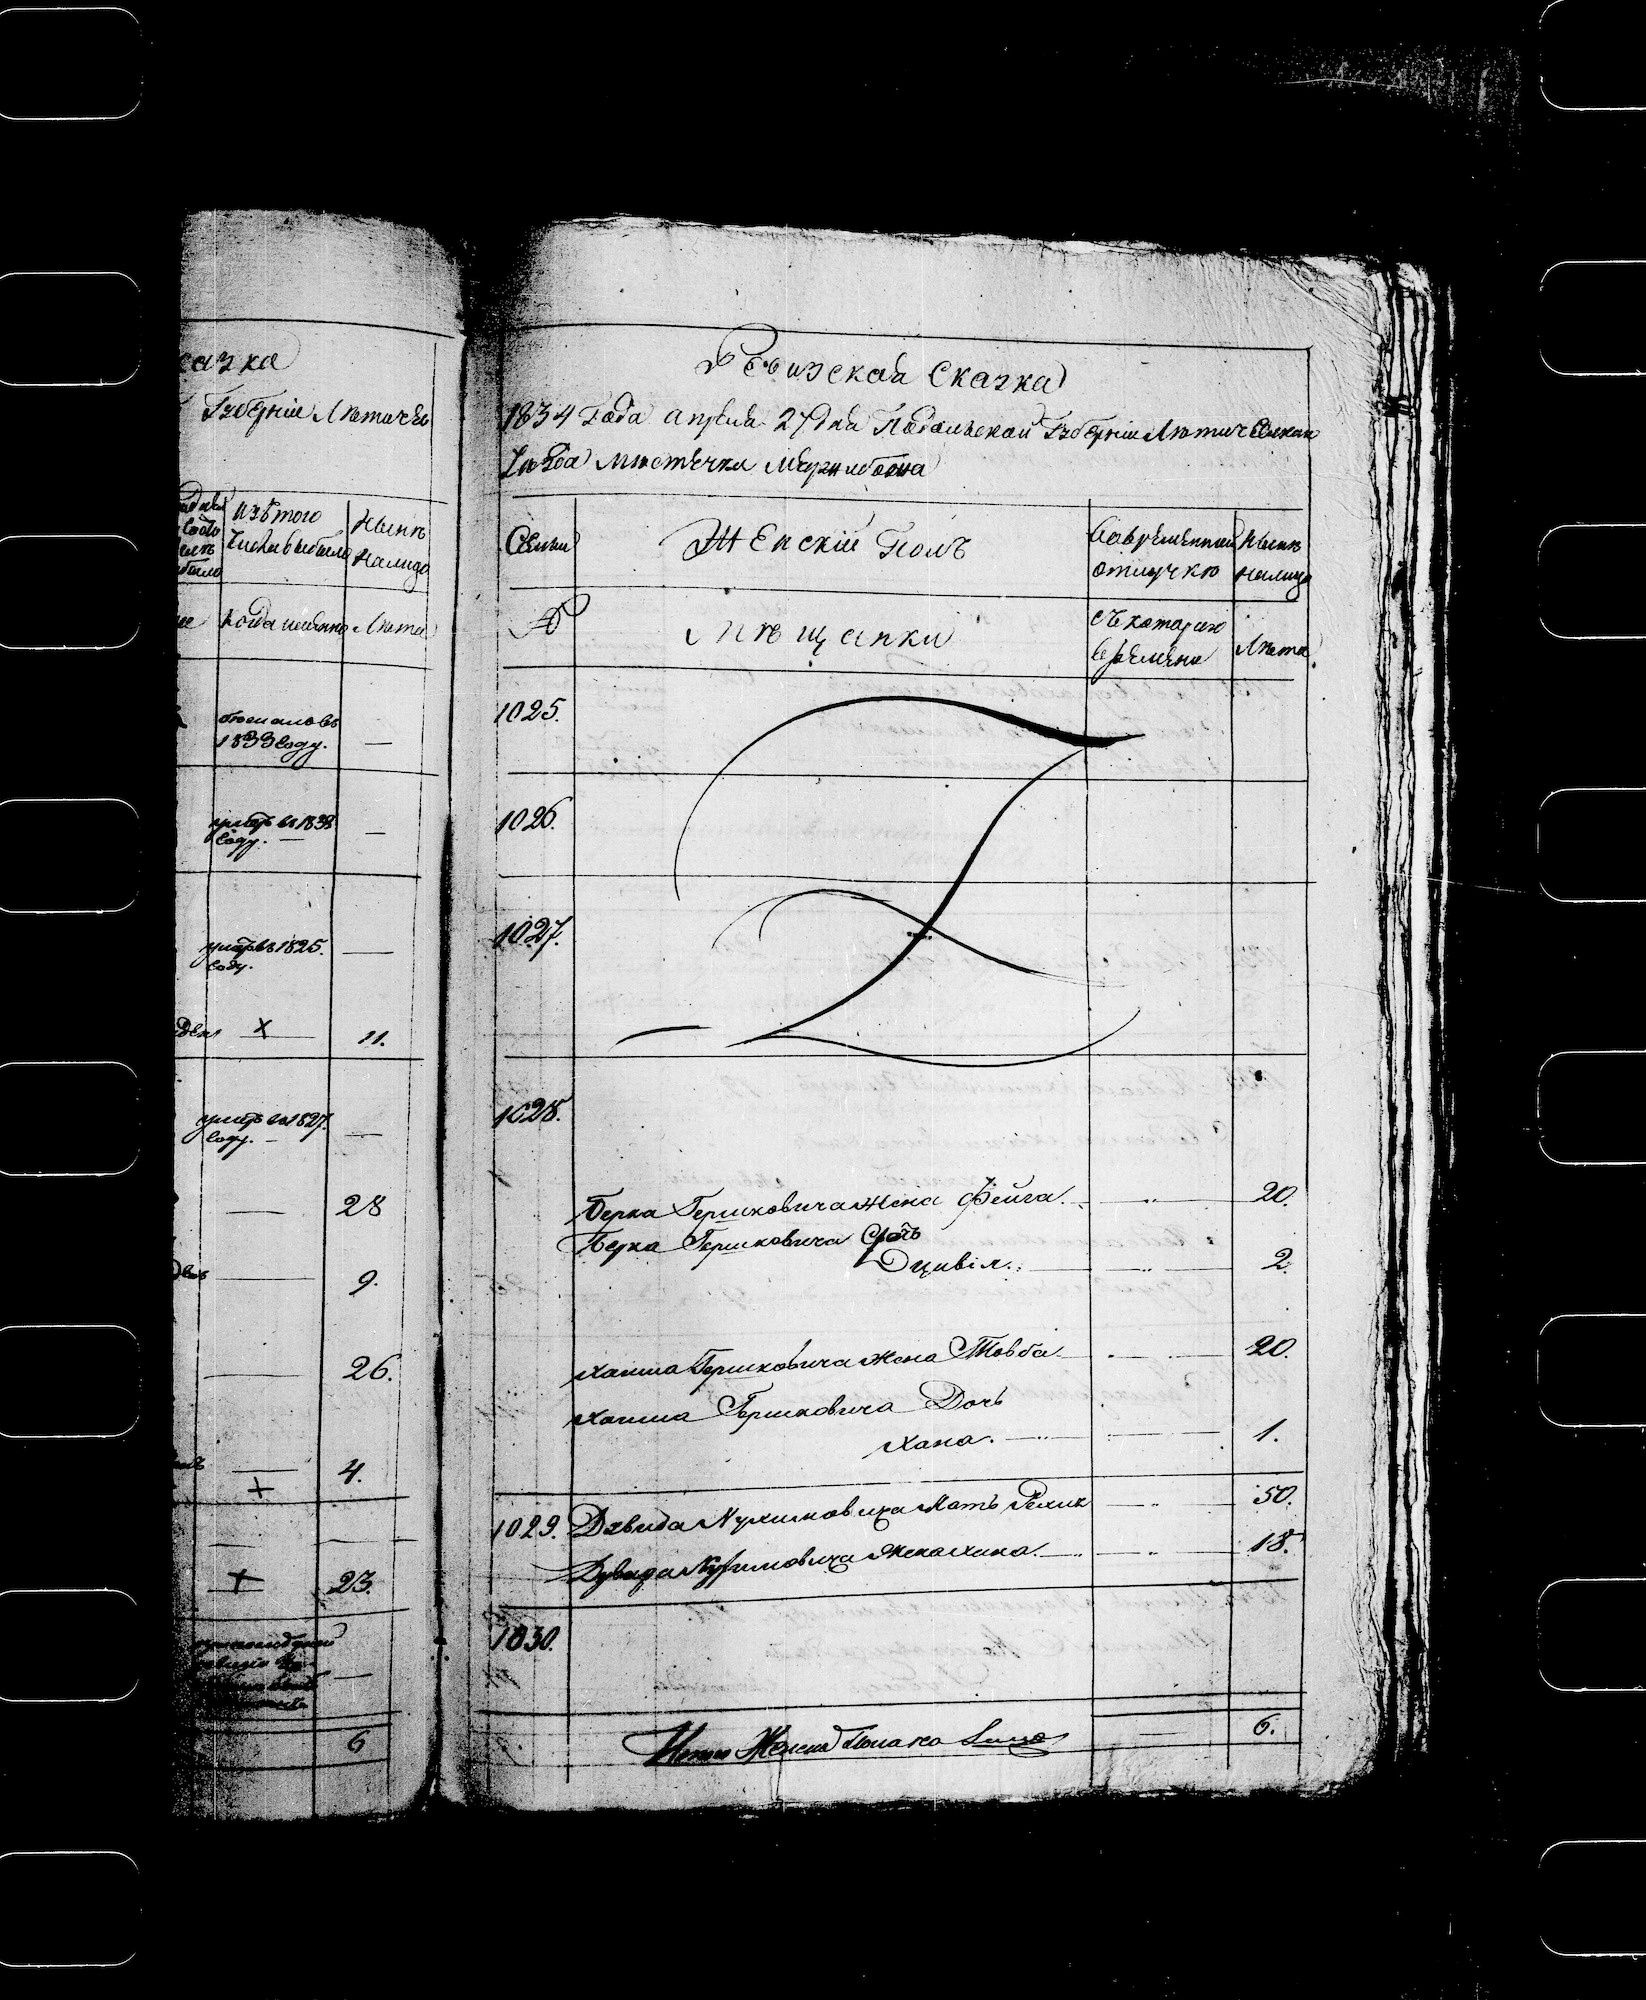 сказка
Губерніи Летичев
изътого
числа выбыло
Ныне
налицо
Когда именно
Лета
1833 году.
—
умеръ въ 1838
году. —
—
умеръ въ 1825.
году.
—
×
11.
умеръ въ 1827.
году. —
—
28
9.
26.
4.
×
×
23.
6
Ревизская Сказка
1834 Года апреля 27 дня Подольской Губерніи Летичевскаго
Уезда Местечка Меджибожа
Семьи
Женскій Полъ
Вовременной
отлучке
Ныне
налицо
№
Мещанки
съ котораго
времени
Лета
1025.
1026.
1027.
1028.
Берка Гершковича жена Фейга. 20.
Берка Гершковича Дочь
Цивія. 2.
Хаима Гершковича жена Товба 20.
Хаима Гершковича Дочь
Хана. 1.
1029. Давида Нухимовича Мать 50.
Дувида Нухимовича жена Хана. 18.
1030.
Итого Женска Пола на Лицо — 6.